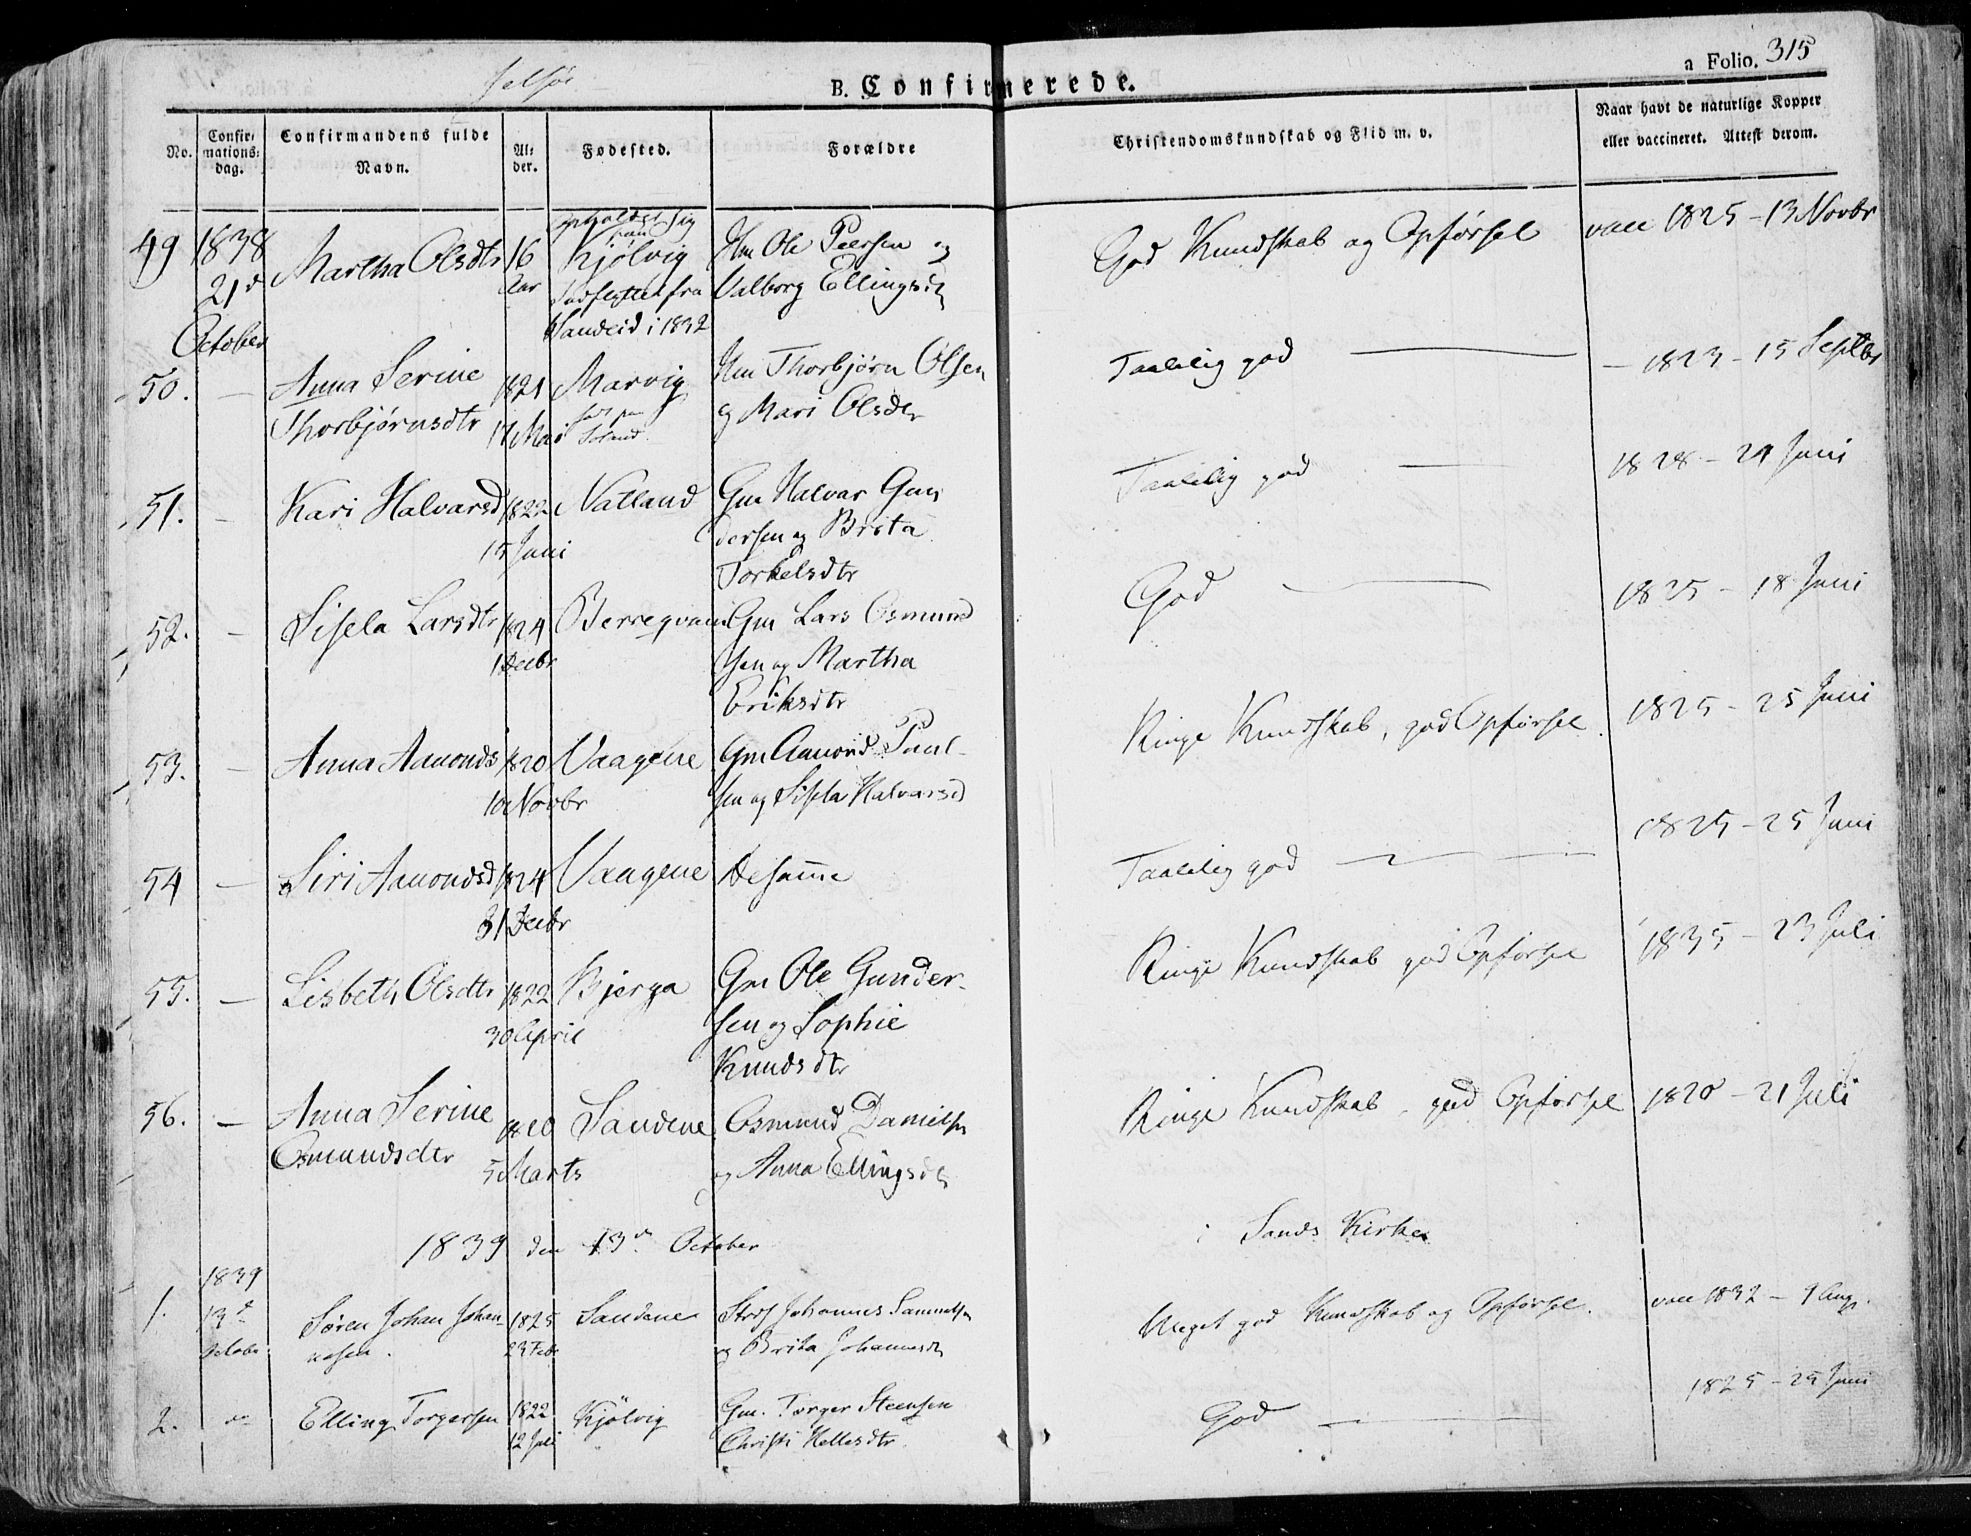 Jelsøe
B. Confirmerede.
a Folio. 315
No.
Confirmationsdag.
Confirmandens fulde Navn.
Alder.
Fødested.
Forældre
Christendomskundskab og Flid m. v.
Naar havt de naturlige Kopper eller vaccineret. Attest derom.
49 1838 21de October Martha Olsdtr 16 Aar opholdet sig paa Kjölvig Indflyttet fra Sandeid i 1832 Hm Ole Peersen og Valborg Ellingsdtr God Kundskab og Opførsel vacc 1825 - 13 Novbr
50. — Anna Serine Thorbjørnsdtr 1821 17 Mai Marvig Hm Thorbjørn Olsen og Mari Olsdtr Taalelig god — — 1823 - 15 Septbr
51. — Kari Halvarsd 1822 15 Juni Natland Gm Halvar Gundersen og Brita Torkelsdtr Taalelig god — 1828 - 24 Juni
52. — Sisela Larsdtr 1824 1 Decbr Berreqvam Gm Lars Osmundsen og Martha Eriksdtr God — 1825 - 18 Juni
53. — Anna Amonds 1820 10 Novbr Vaagene Gm Amond Paulsen og Sisela Halvarsd Ringe Kundskab, god Opførsel. 1825 - 25 Juni
54 — Siri Amondsd 1824 31 Decbr Vaagene De samme Taalelig god — 1825 - 25 Juni
55. — Lisbeth Olsdtr 1822 30 April Bjerga Gm Ole Gundersen og Sophie Knudsdtr Ringe Kundskab god Opførsel 1835 - 23 Juli
56. — Anna Serine Osmundsdtr 1820 5 Marts Sandene Osmund Danielsen og Anna Ellingsdtr Ringe Kundskab, god Opførsel 1820 - 21 Juli
1839 den 13de October i Sands Kirke
1. 1839 13de October Søren Johan Johannesen. 1825 23 Febr Sandene Johannes Samuelsen og Brita Johannesdtr Meget god Kundskab og Opførsel. vacc 1832 - 9 Aug.
2. Elling Torgersen 1822 12 Juli Kjölvig Gm. Torger Steensen Christi Hellesdtr. God — 1825 - 25 Juni